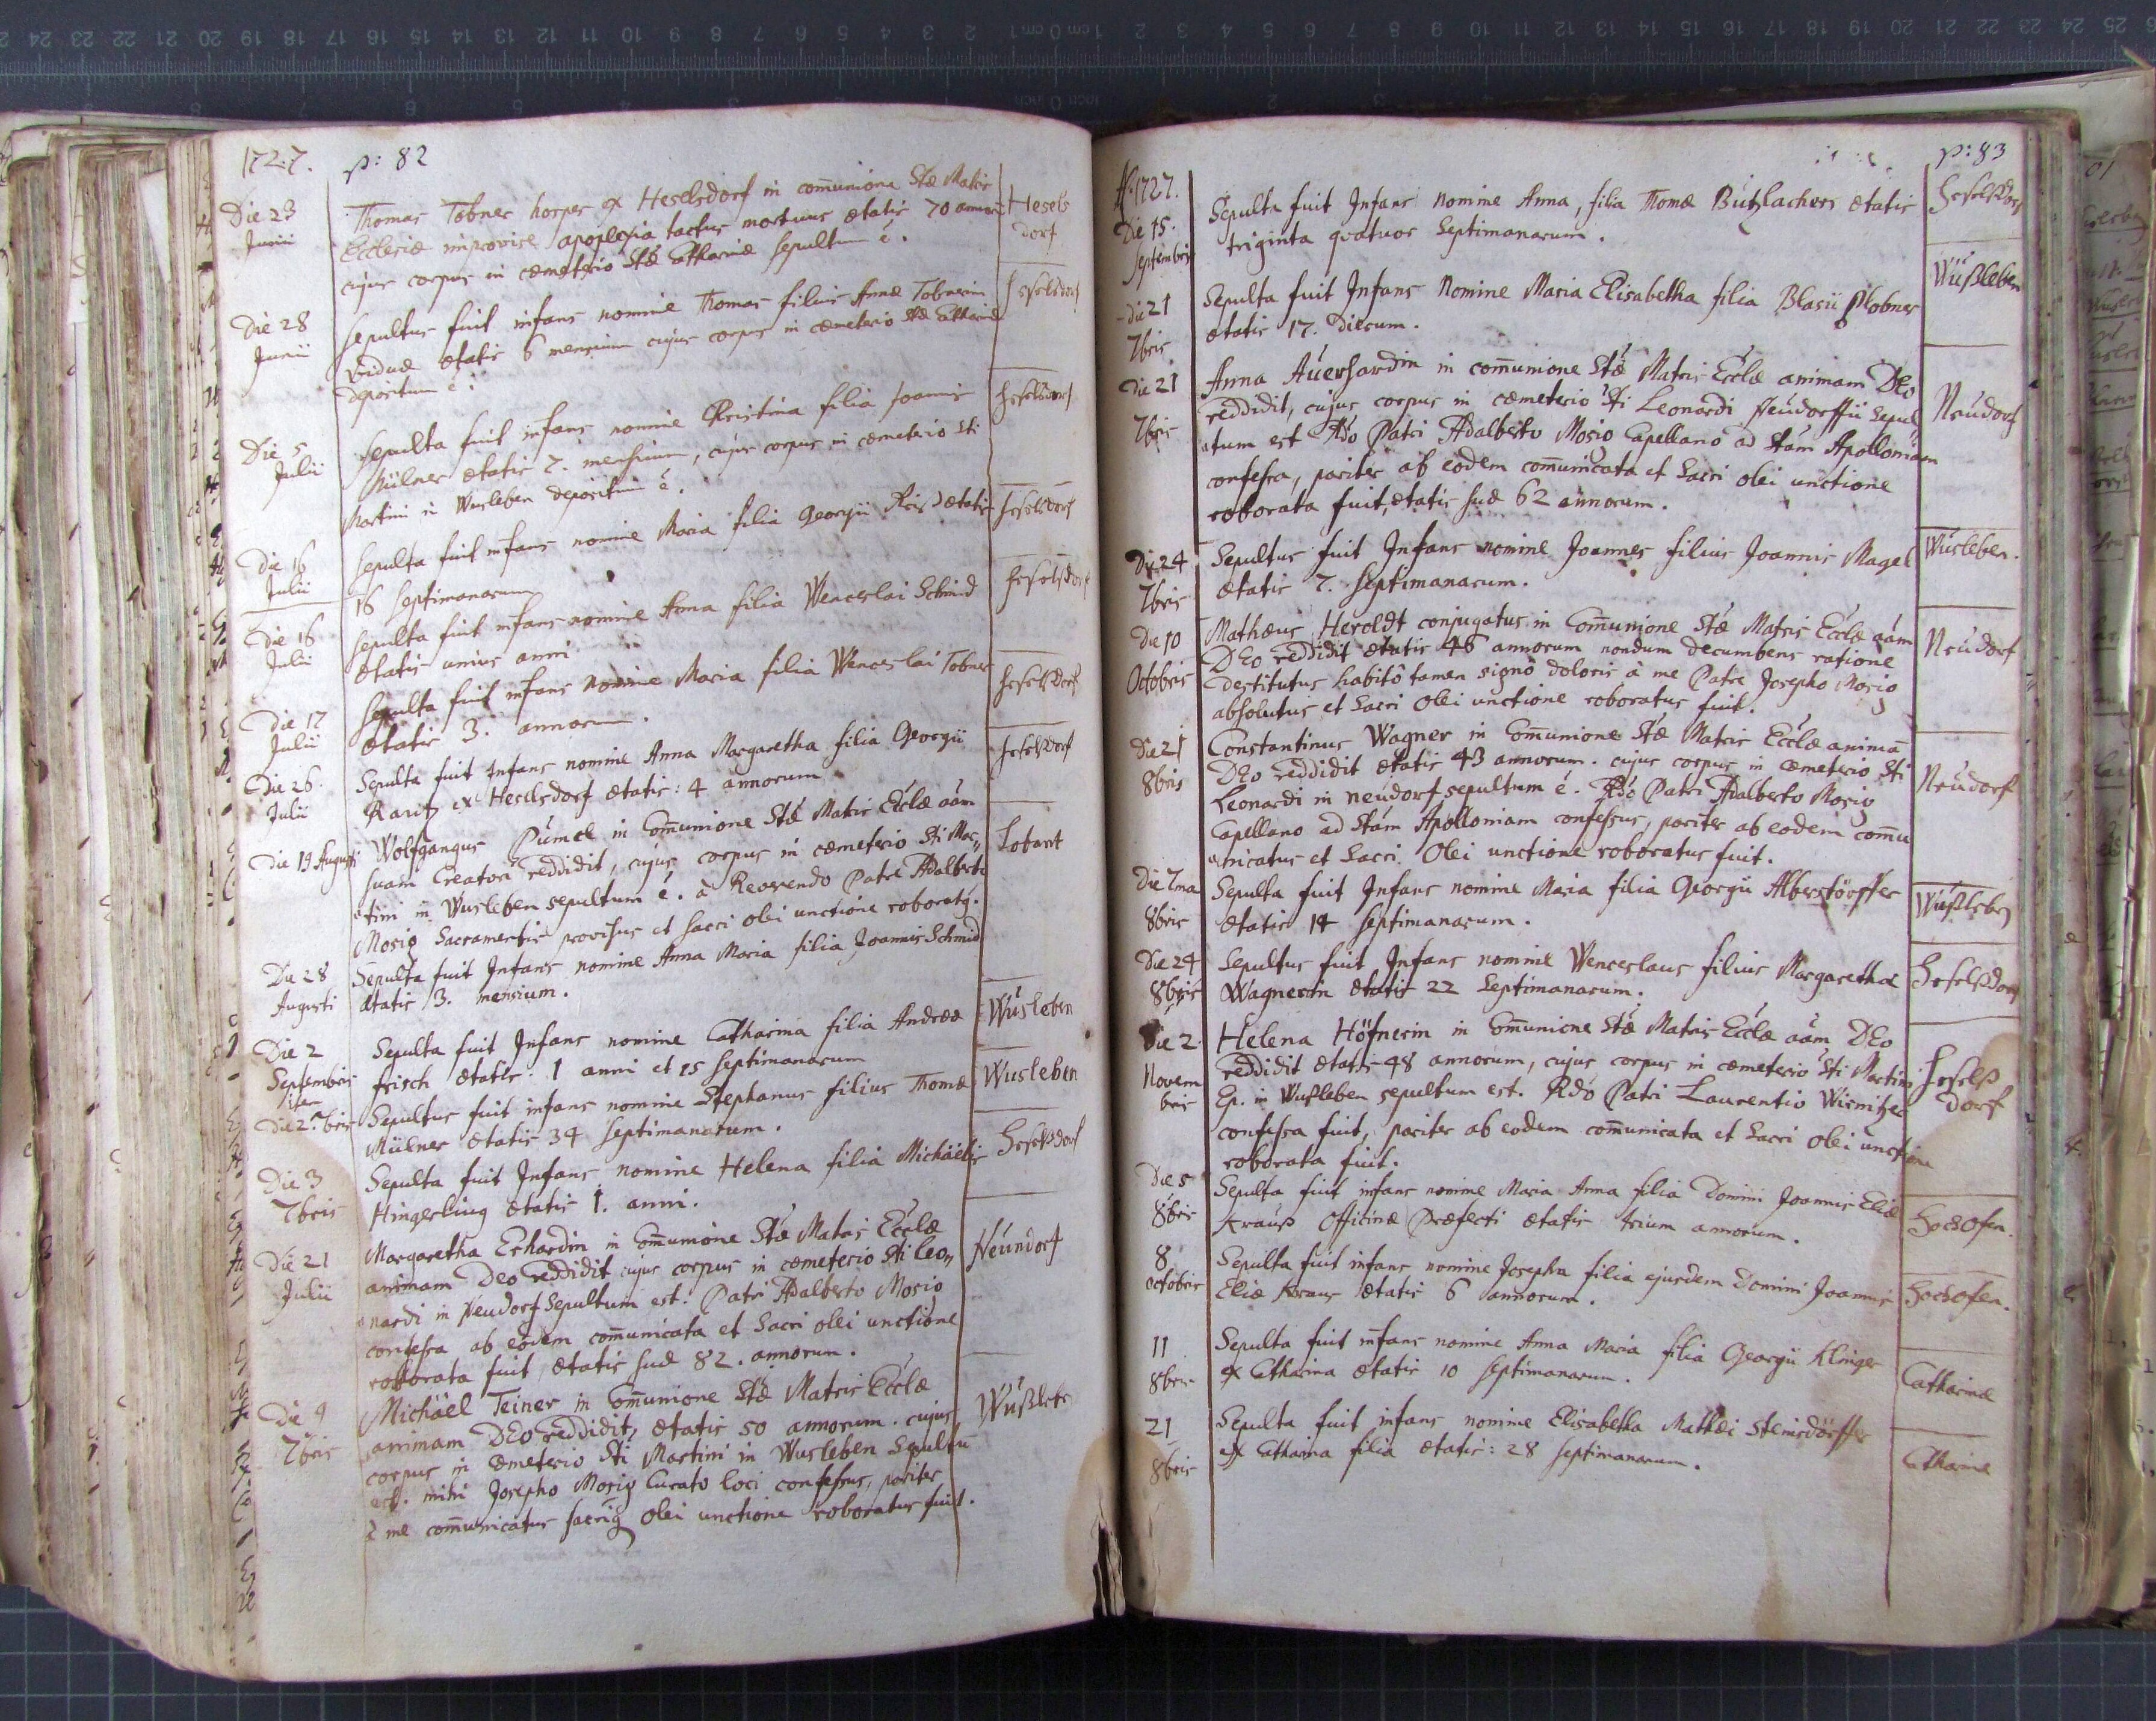 1727.
p: 82
Die 23 Junii
Thomas Tobner hospes ex Heselsdorf in com̄unione Stæ Matris
Hesels dorf
Ecclesiæ improvise apoplexia tactus mortuus ætatis 70 annorū
cujus corpus in cæmeterio Stæ Catharinæ sepultum é.
Die 28 Junii
Sepultus fuit infans nomine Thomas filius Annæ Tobnerin
Heselsdorf
viduæ ætatis 6 mensium cujus corpus in cæmeterio Stæ Catharinæ
depositum é.
Die 5 Julii
Sepulta fuit infans nomine Christina filia Joannis
Heselsdorf
Mülner ætatis 7. mensium, cujus corpus in cæmeterio Sti
Martini in Wusleben depositum é.
Die 16 Julii
Sepulta fuit infans nomine Maria filia Georgii ætatis
Heselsdorf
16 septimanarum
Die 16 Julii
Sepulta fuit infans nomine Anna filia Wenceslai Schmid
Heselsdorf
ætatis unius anni.
Die 17 Julii
Sepulta fuit infans nomine Maria filia Wenceslai Tobner
Heselsdorf
ætatis 3. annorum.
Die 26. Julii
Sepulta fuit Infans nomine Anna Margaretha filia Georgii
Heselsdorf
Raritz ex Heselsdorf ætatis: 4 annorum
Die 19 Augusti
Wolfgangus Pümel in Com̄unione Stæ Matris Ecclæ aām
suam Creatori reddidit, cujus corpus in cæmeterio Sti Mar„
„tini in Wusleben sepultum é. à Reverendo Patre Adalberto
Mosig Sacramentis provisus et Sacri olei unctione roboratg.
Die 28 Augusti
Sepulta fuit Infans nomine Anna Maria filia Joannis Schmid
ætatis 3. mensium.
Wusleben
Die 2 Septembris
Sepulta fuit Infans nomine Catharina filia Andreæ
frisch ætatis: 1 anni et 15 septimanarum
Wusleben
Die 2. 7bris
Sepultus fuit infans nomine Stephanus filius Thomæ
Mülner ætatis 34 septimanarum.
Die 3 7bris
Sepulta fuit Infans nomine Helena filia Michäelis
Heselsdorf
Hingerling ætatis 1. anni.
Die 21 Julii
Margaretha Erhardin in Com̄unione Stæ Matris Ecclæ
Neundorf
animam Deo reddidit cujus corpus in cæmeterio Sti Leo„
„nardi in Neudorf Sepultum est. Patri Adalberto Mosio
confessa ab eodem com̄unicata et Sacri olei unctione
roborata fuit ætatis suæ 82. annorum.
Die 9 7bris
Michäel Teiner in Com̄unione Stæ Matris Ecclæ
animam DEo reddidit, ætatis 50 annorum. cujus
corpus in cæmeterio Sti Martini in Wusleben Sepultū
est. mihi Josepho Mosig Curato loci confessus, pariter
à me com̄unicatus sacrig olei unctione roboratus fuit.
1727.
p: 83
Die 15. Septembris
Sepulta fuit Infans nomine Anna, filia Thomæ Butzlachers ætatis
triginta quatuor Septimanarum.
Die 21 7bris
Sepulta fuit Infans Nomine Maria Elisabetha filia Blasii Plobner
Wüßleben
ætatis 17. dierum.
Die 21 7bris
Anna Auerhardin in com̄unione Stæ Matris Ecclæ animam DEo
Neudorf
reddidit, cujus corpus in cæmeterio Sti Leonardi Neudorffii Sepul„
„tum est Rdo Patri Adalberto Mosio Capellano ad Stam Apolloniam
confessa, pariter ab eodem com̄unicata et Sacri olei unctione
roborata fuit, ætatis suæ 62 annorum.
Die 24 7bris
Sepultus fuit Infans nomine Joannes filius Joannis Magel
Wusleben.
ætatis 7. septimanarum.
Die 10 Octobris
Mathæus Heroldt conjugatus in Com̄unione Stæ Matris Ecclæ aām
Neudorf
DEo reddidit ætatis 46 annorum nondum decumbens ratione
destitutus habitô tamen signô doloris à me Patre Josepho Mosig
absolutus et Sacri Olei unctione roboratus fuit.
Die 21 8bris
Constantinus Wagner in Com̄unione Stæ Matris Ecclæ animā
Neudorf
DEo reddidit ætatis 43 annorum. cujus corpus in cæmeterio Sti
Leonardi in neudorf sepultum é. Rdo Patri Adalberto Mosig
Capellano ad Stam Apolloniam confessus, pariter ab eodem com̄u
„nicatus et Sacri Olei unctione roboratus fuit.
Die 7ma 8bris
Sepulta fuit Infans nomine Maria filia Georgii Alberstörffer
ætatis 14 septimanarum.
Die 24 8bris
Sepultus fuit Infans nomine Wenceslaus filius Margarethæ
Wagnerin ætatis 22 Septimanarum.
Die 2 Novembris
Helena Höfnerin in Com̄unione Stæ Matris Ecclæ aām DEo
Heselß dorf
reddidit ætatis 48 annorum, cujus corpus in cæmeterio Sti Martini
Ep. in Wußleben sepultum est. Rdo Patri Laurentio Wirnitzer
confessa fuit, pariter ab eodem com̄unicata et Sacri olei unctione
roborata fuit.
Die 5 8bris
Sepulta fuit infans nomine Maria Anna filia Domini Joannis Eliæ
Hochofen.
Krauß Officinæ Præfecti ætatis trium annorum.
8 octobris
Sepulta fuit infans nomine Josepha filia ejusdem Domini Joannis
Hochofen.
Eliæ Kraus ætatis 6 annorum.
11 8bris
Sepulta fuit infans nomine Anna Maria filia Georgii Klinger
Catharinæ
ex Catharina ætatis 10 septimanarum.
21 8bris
Sepulta fuit infans nomine Elisabetha Mathæi Steinsdörffer
ex Catharina filia ætatis: 28 septimanarum.